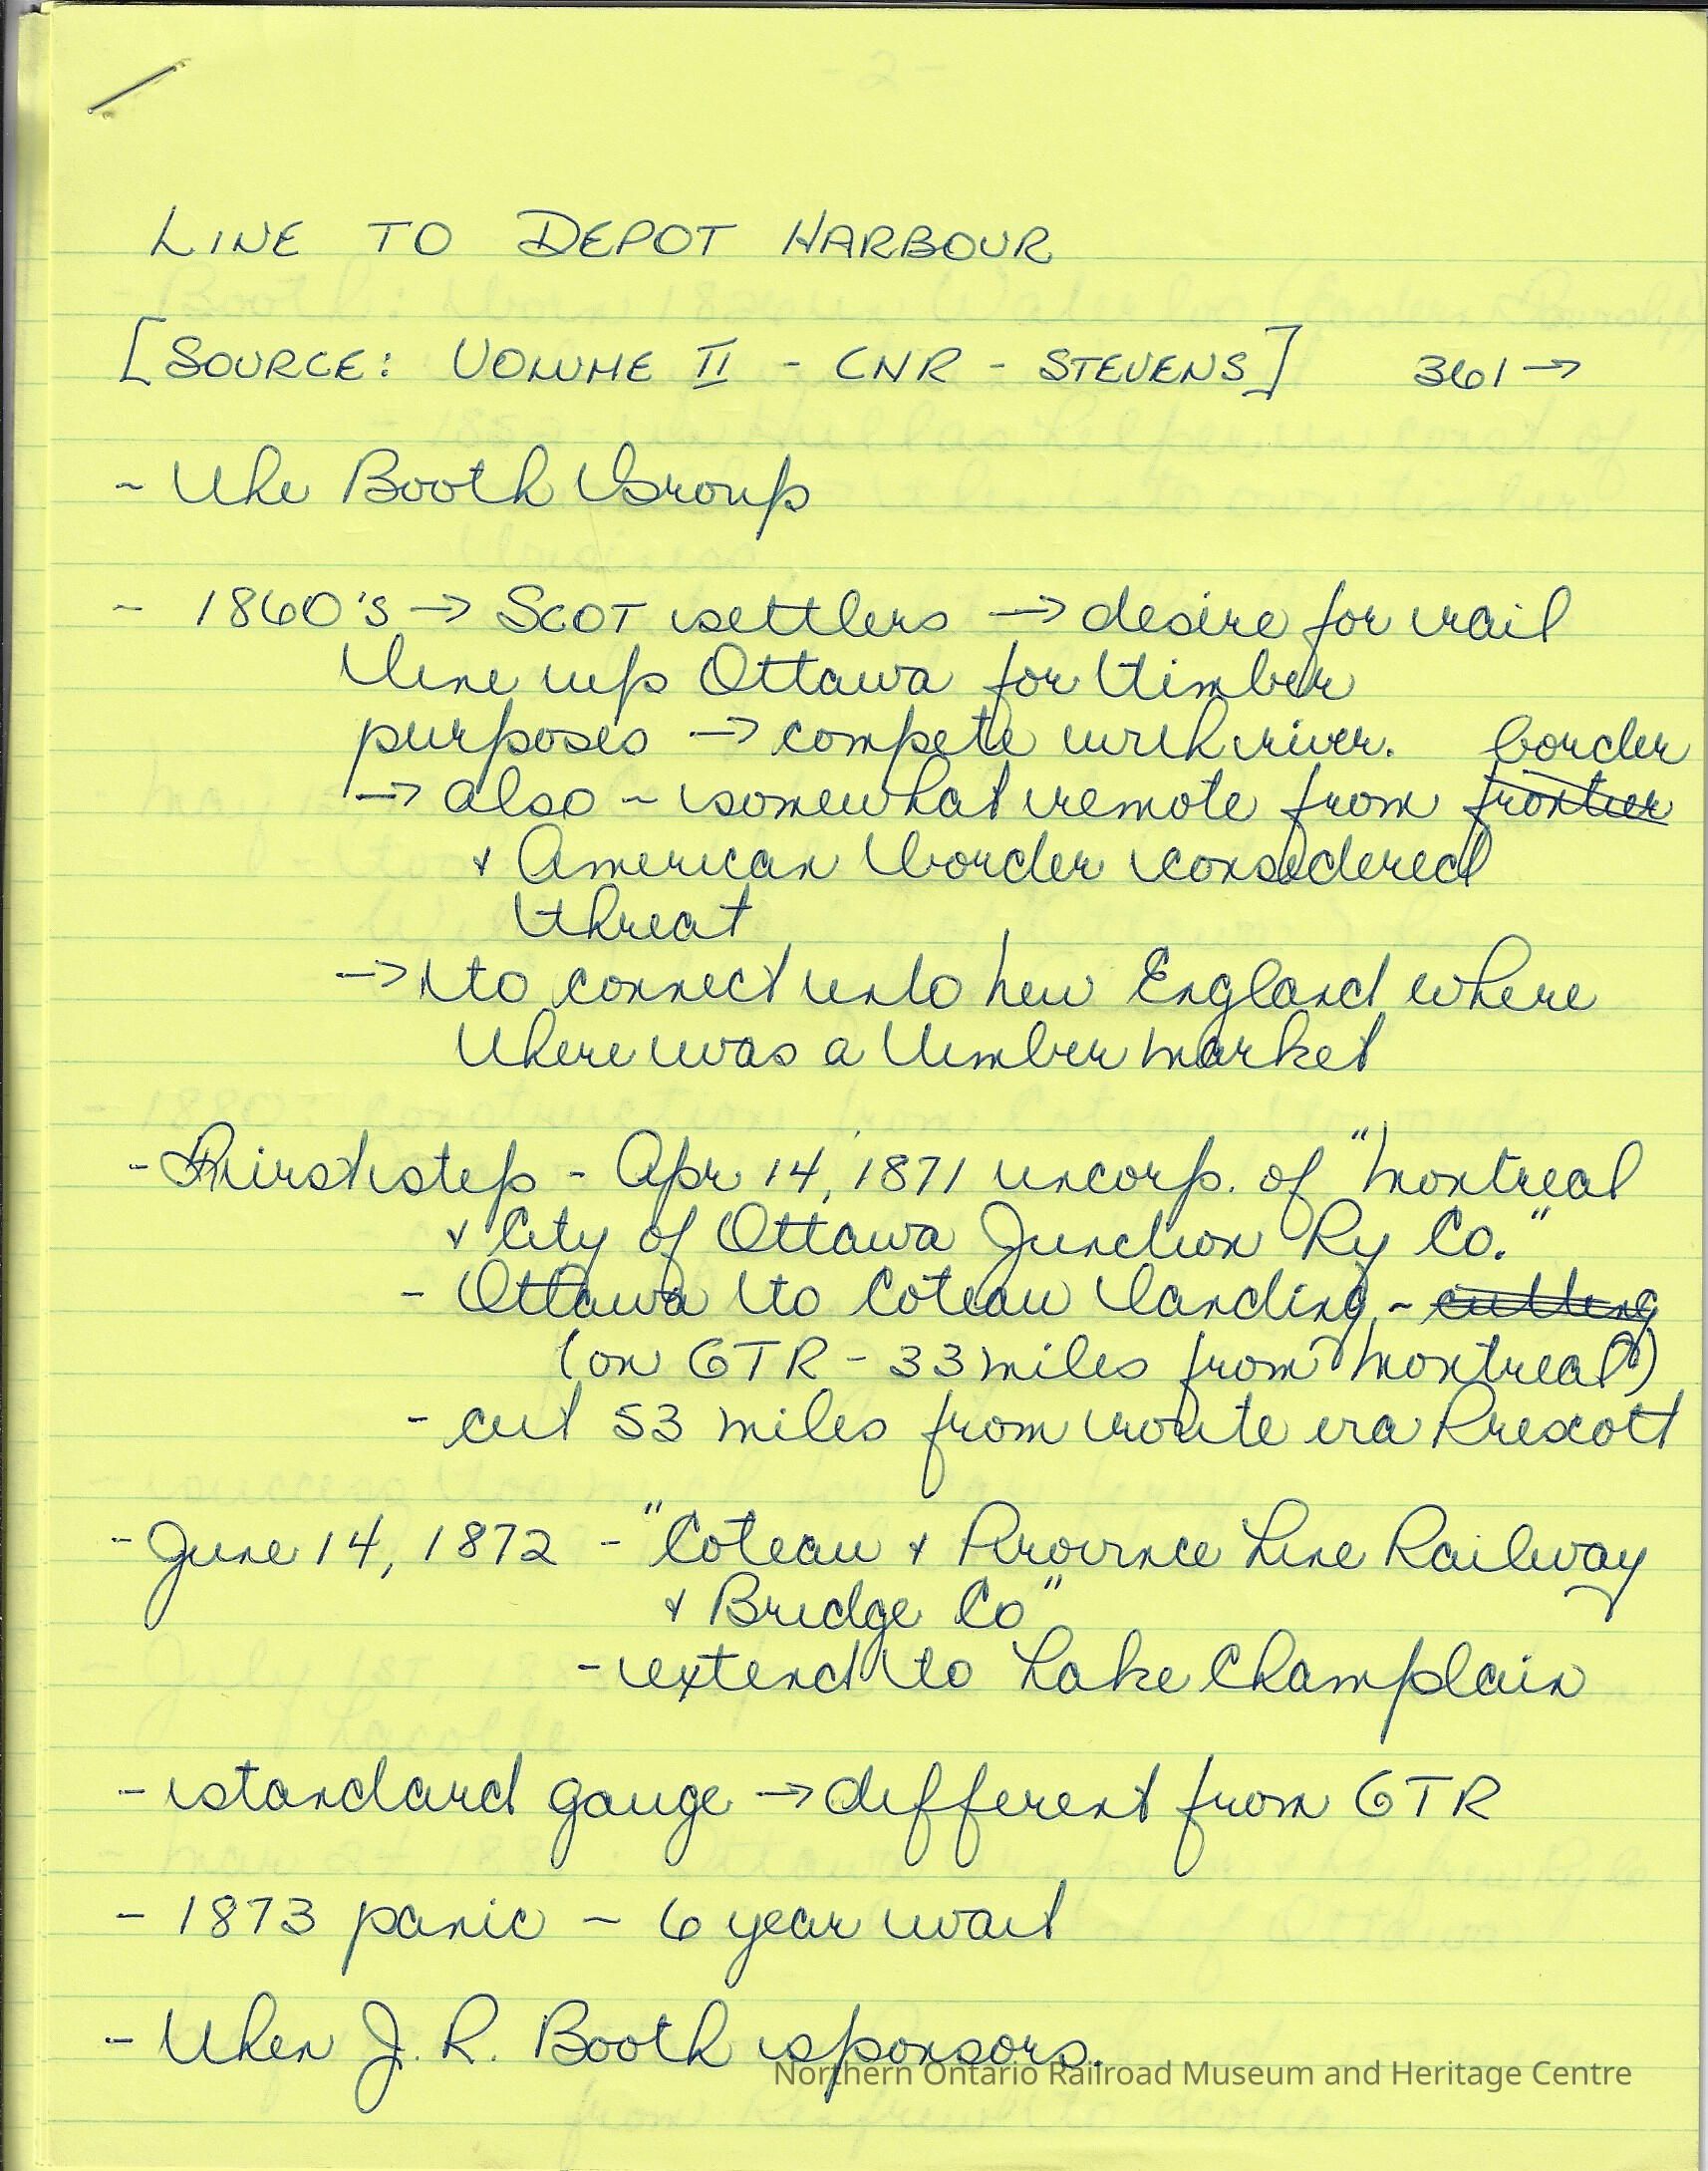 LINE TO DEPOT HARBOUR
[SOURCE: VOLUME II - CNR - STEVENS] 361→
- The Booth Group
- 1860's → SCOT settlers → desire for rail
line up Ottawa for timber
purposes → compete with river. border
→ also - somewhat remote from frontier
& American border considered
threat
→ to connect into New England where
there was a lumber market
- First step - Apr 14, 1871 incorp. of "Montreal
& City of Ottawa Junction Ry Co."
- Ottawa to Coteau Landing - cutting
(on GTR - 33 miles from Montreal)
- cut 53 miles from route via Prescott
- June 14, 1872 - "Coteau & Province Line Railway
& Bridge Co"
- extend to Lake Champlain
- standard gauge → different from GTR
- 1873 panic - 6 year wait
- Then J. R. Booth sponsors.
Northern Ontario Railroad Museum and Heritage Centre